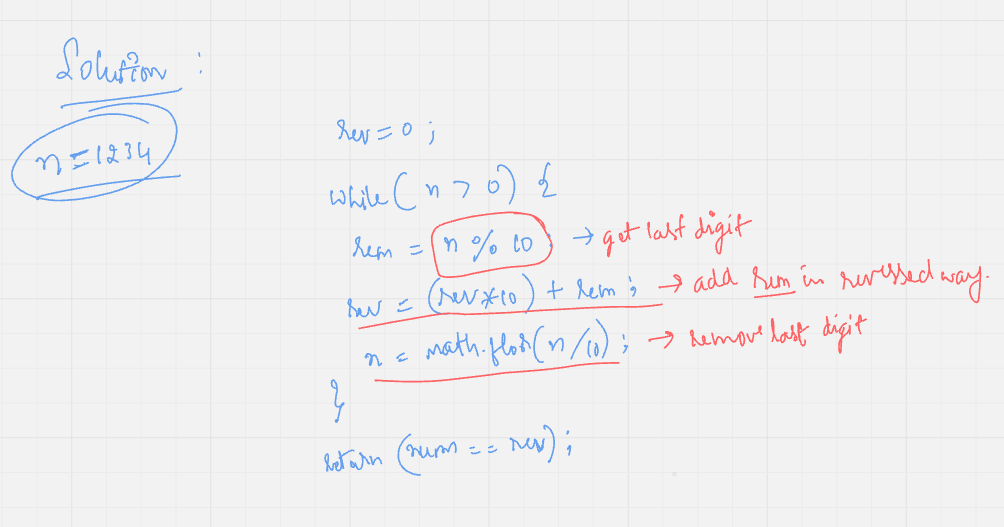 Solution :
n = 1234
rev = 0 ;
while ( n > 0 ) {
rem = n % 10 ; → get last digit
rev = (rev*10) + rem ; → add rem in reversed way.
n = math.floor(n/10) ; → remove last digit
}
return (num == rev) ;